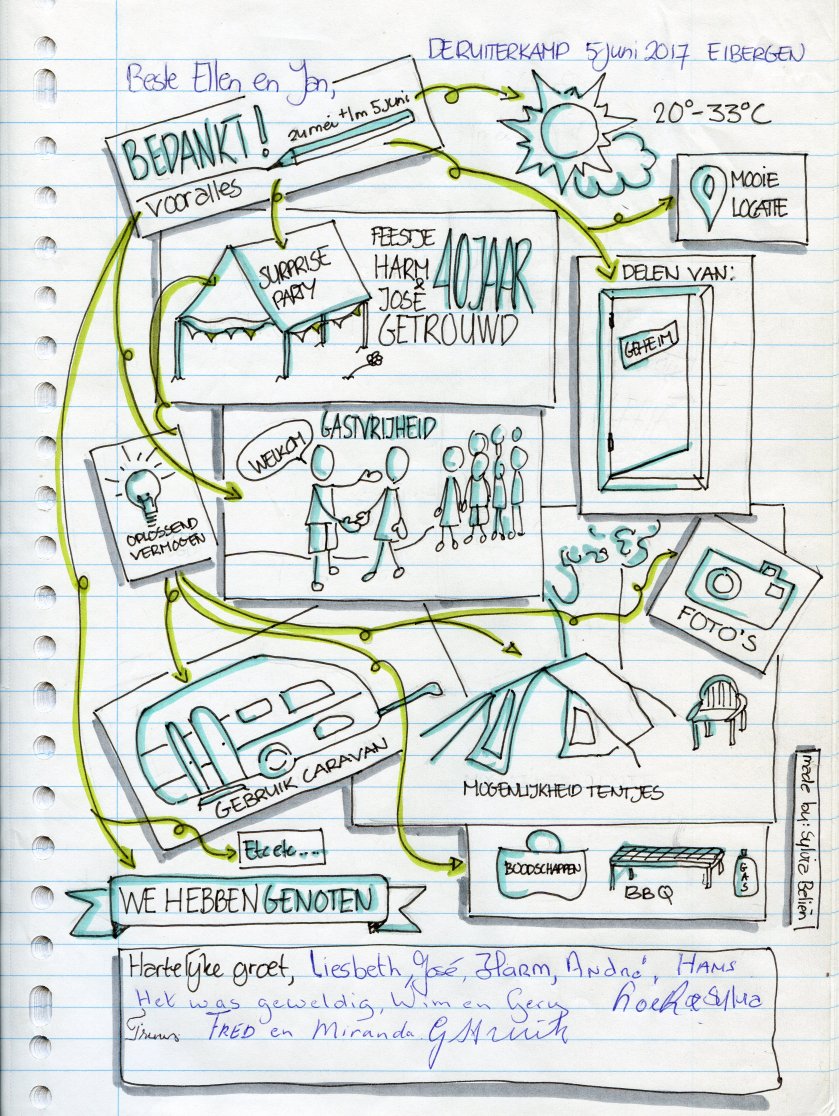 DE RUITERKAMP 5 juni 2017 EIBERGEN
Beste Ellen en Jan,
BEDANKT!
24 mei t/m 5 juni
voor alles
20°-33°C
MOOIE
LOCATIE
SURPRISE
PARTY
FEESTJE
HARM
&
JOSÉ
40 JAAR
GETROUWD
DELEN VAN:
GEHEIM
GASTVRIJHEID
WELKOM
OPLOSSEND
VERMOGEN
FOTO'S
GEBRUIK CARAVAN
MOGENLIJKHEID TENTJES
Etc etc....
BOODSCHAPPEN
BBQ
GAS
made by: Sylvia Beliën
WE HEBBEN GENOTEN
Hartelijke groet, Liesbeth, José, Harm, André, HANS
Het was geweldig, Wim en Gerry & Sylvia
FRED en Miranda.